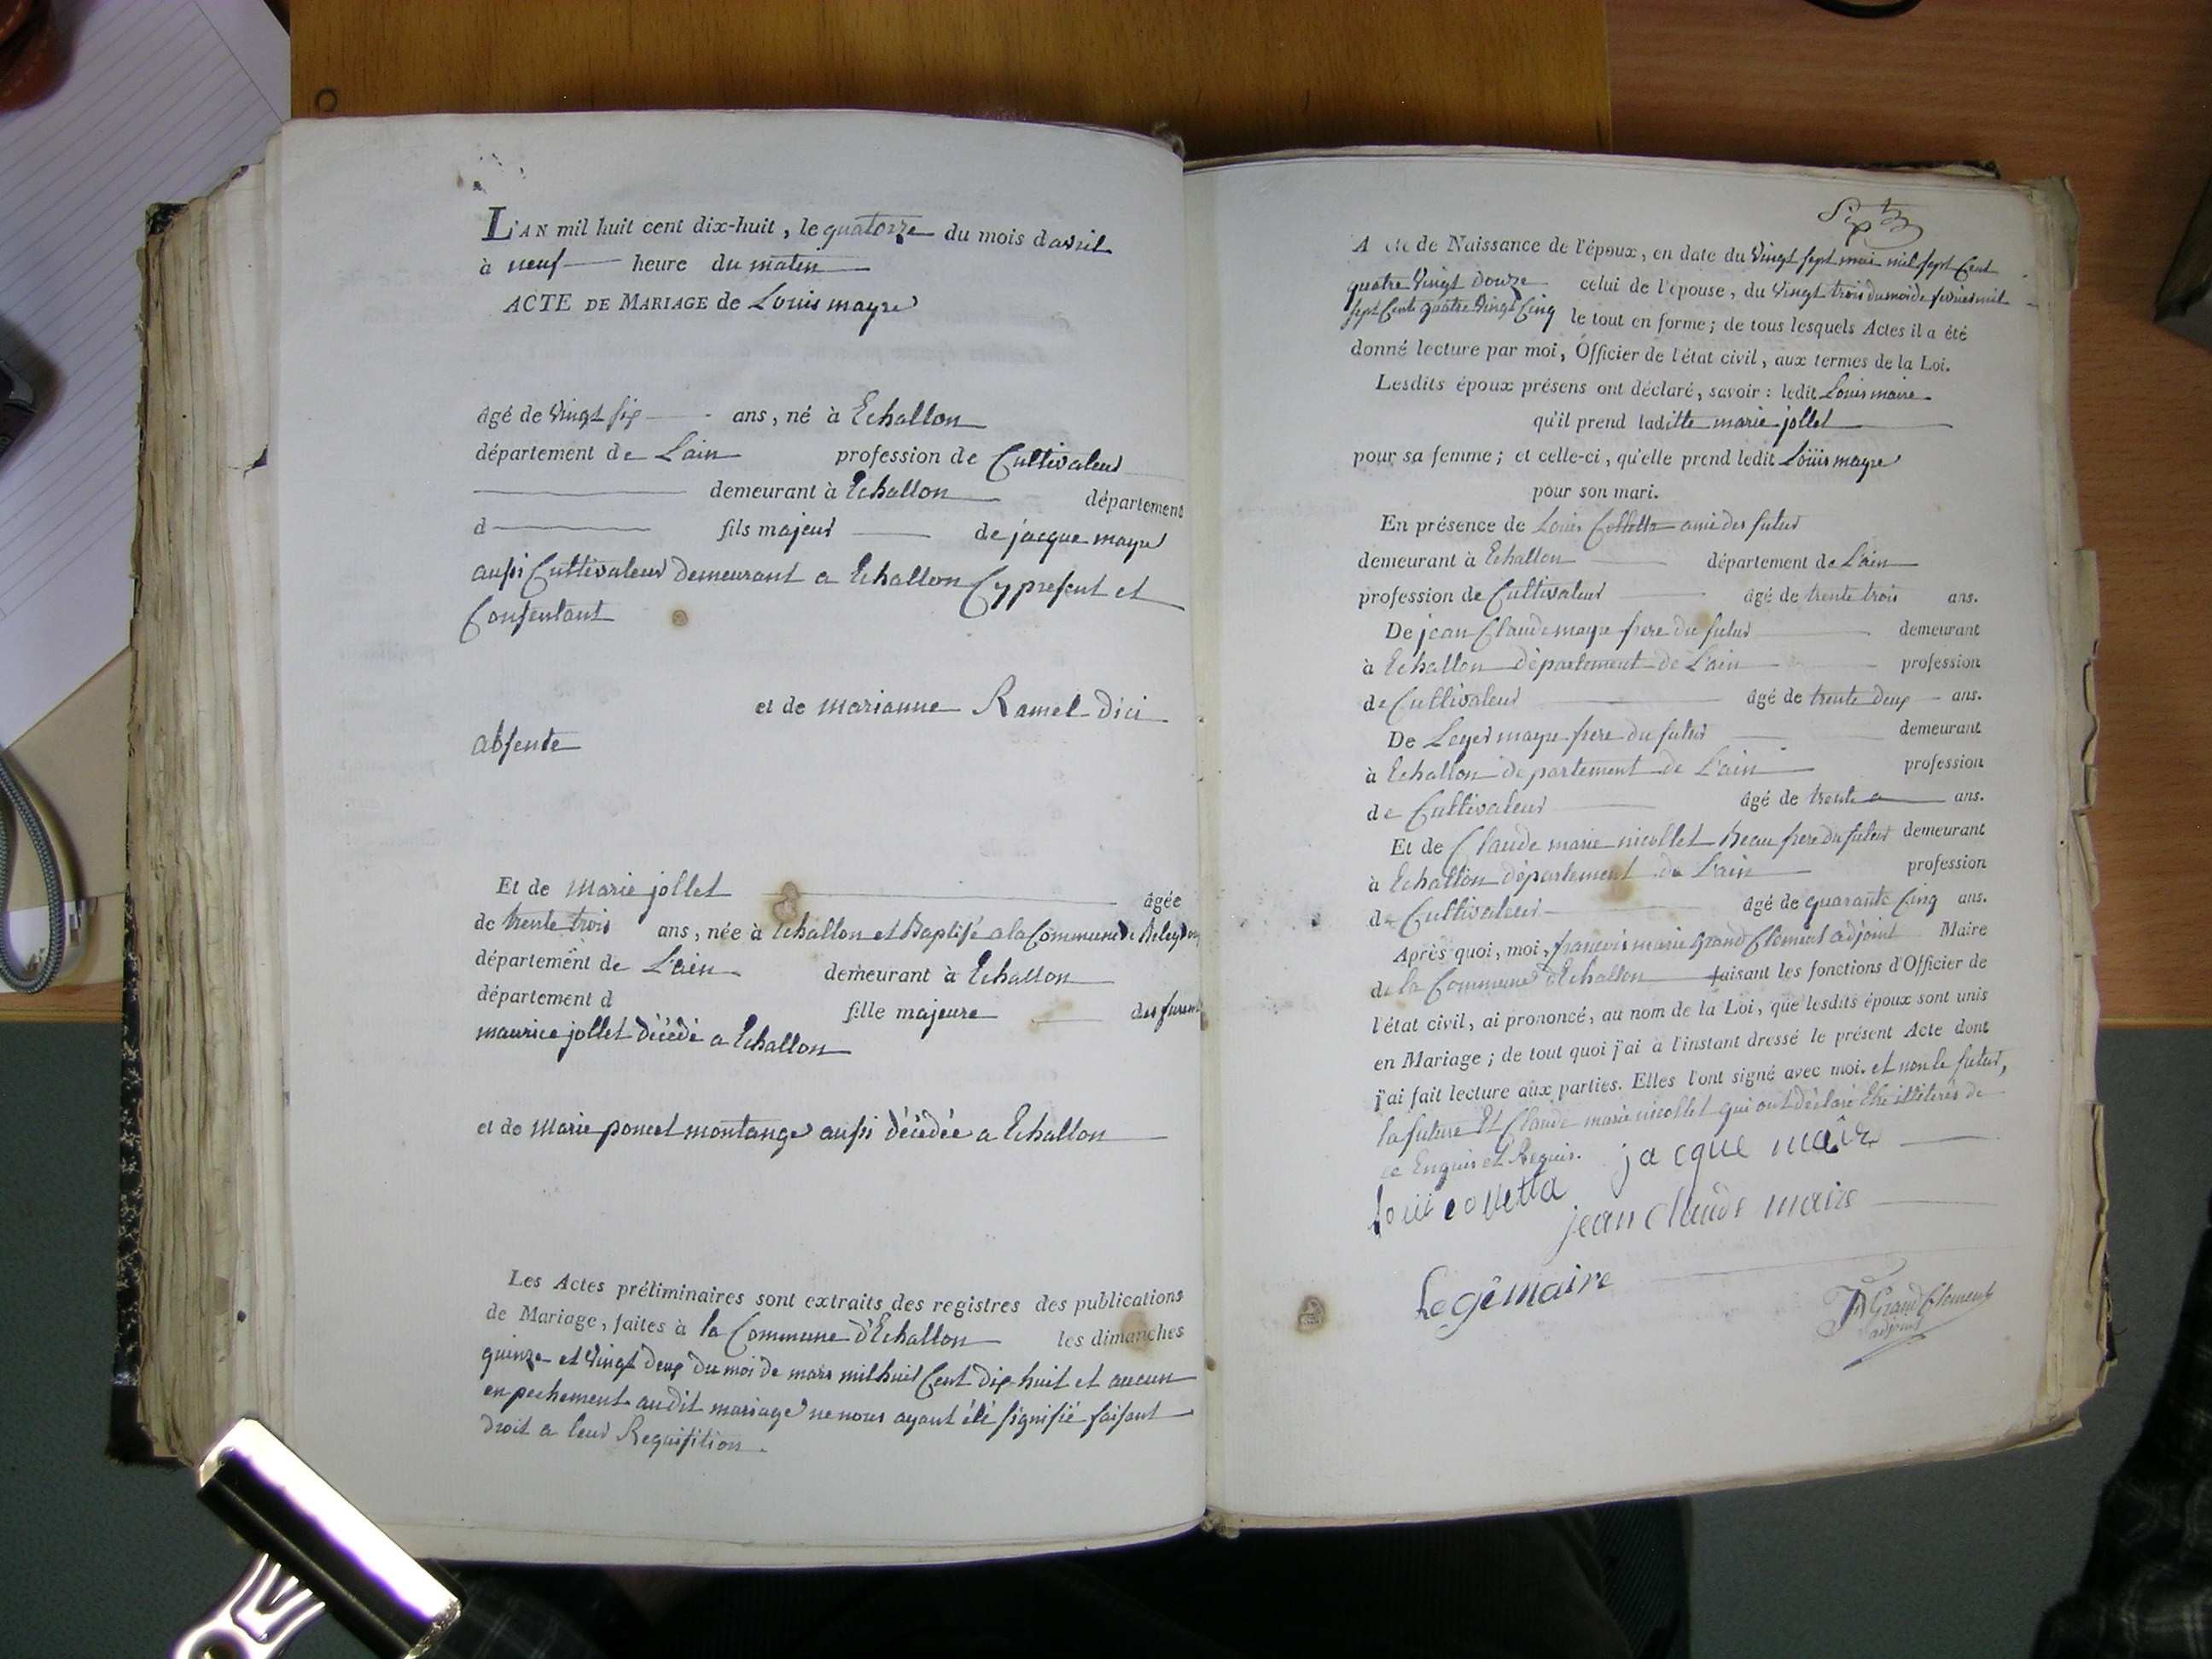 L'AN mil huit cent dix-huit, le quatorze du mois davril
à neuf heure du matin
ACTE DE MARIAGE de Louis mayre
âgé de vingt six ans, né à Echallon
département de L'ain profession de Cultivateur
demeurant à Echallon département
d fils majeur de jacque mayre
aussi Cultivateur demeurant a Echallon Cy present et
Consentant
et de marianne Ramel dici
absente
Et de Marie jollet âgée
de trente trois ans, née à Echallon et Baptisé a la Commune de
département de L'ain demeurant à Echallon
département d fille majeure des
maurice jollet décédé a Echallon
et de Marie poncet montange aussi décédée a Echallon
Les Actes préliminaires sont extraits des registres des publications
de Mariage, faites à la Commune d'Echallon les dimanches
quinze et vingt deux du moi de mars mil huit Cent dix-huit et aucun
enpechement audit mariage ne nous ayant été signifié faisant
droit a leur Requisition.
Six
Acte de Naissance de l'époux, en date du vingt sept mai mil sept Cent
quatre vingt douze celui de l'épouse, du vingt trois du moi de fevrier mil
sept Cent quatre vingt Cinq le tout en forme; de tous lesquels Actes il a été
donné lecture par moi, Officier de l'état civil, aux termes de la Loi.
Lesdits époux présens ont déclaré, savoir: ledit Louis maire
qu'il prend laditte marie jollet
pour sa femme; et celle-ci, qu'elle prend ledit Loüis mayre
pour son mari.
En présence de Louis Colletta ami des futur
demeurant à Echallon département de L'ain
profession de Cultivateur âgé de trente trois ans.
De jean Claude mayre frere du futur demeurant
à Echallon département de L'ain profession
de Cultivateur âgé de trente deux ans.
De Leger mayre frere du futur demeurant
à Echallon departement de L'ain profession
de Cultivateur âgé de trente ans.
Et de Claude marie nicollet beau frere du futur demeurant
à Echallon département de L'ain profession
de Cultivateur âgé de quarante Cinq ans.
Après quoi, moi, francois marie Grand Clement adjoint Maire
de la Commune d'Echallon faisant les fonctions d'Officier de
l'état civil, ai prononcé, au nom de la Loi, que lesdits époux sont unis
en Mariage; de tout quoi j'ai à l'instant dressé le présent Acte dont
j'ai fait lecture aux parties. Elles l'ont signé avec moi. et non le futur,
la future Et Claude marie nicollet qui ont déclaré être illiterés de
ce Enquis et Requis. jacque maire
loui colletta
jean claude maire
Legé maire
Grand Clement
adjoint